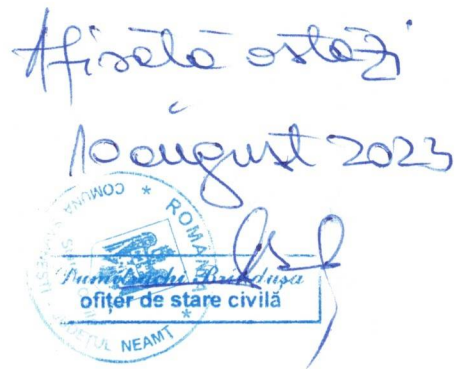 Afisată astăzi
10 august 2023
COMUNA * ROMANIA *
JUDEȚUL NEAMȚ
Brîndușa
ofițer de stare civilă